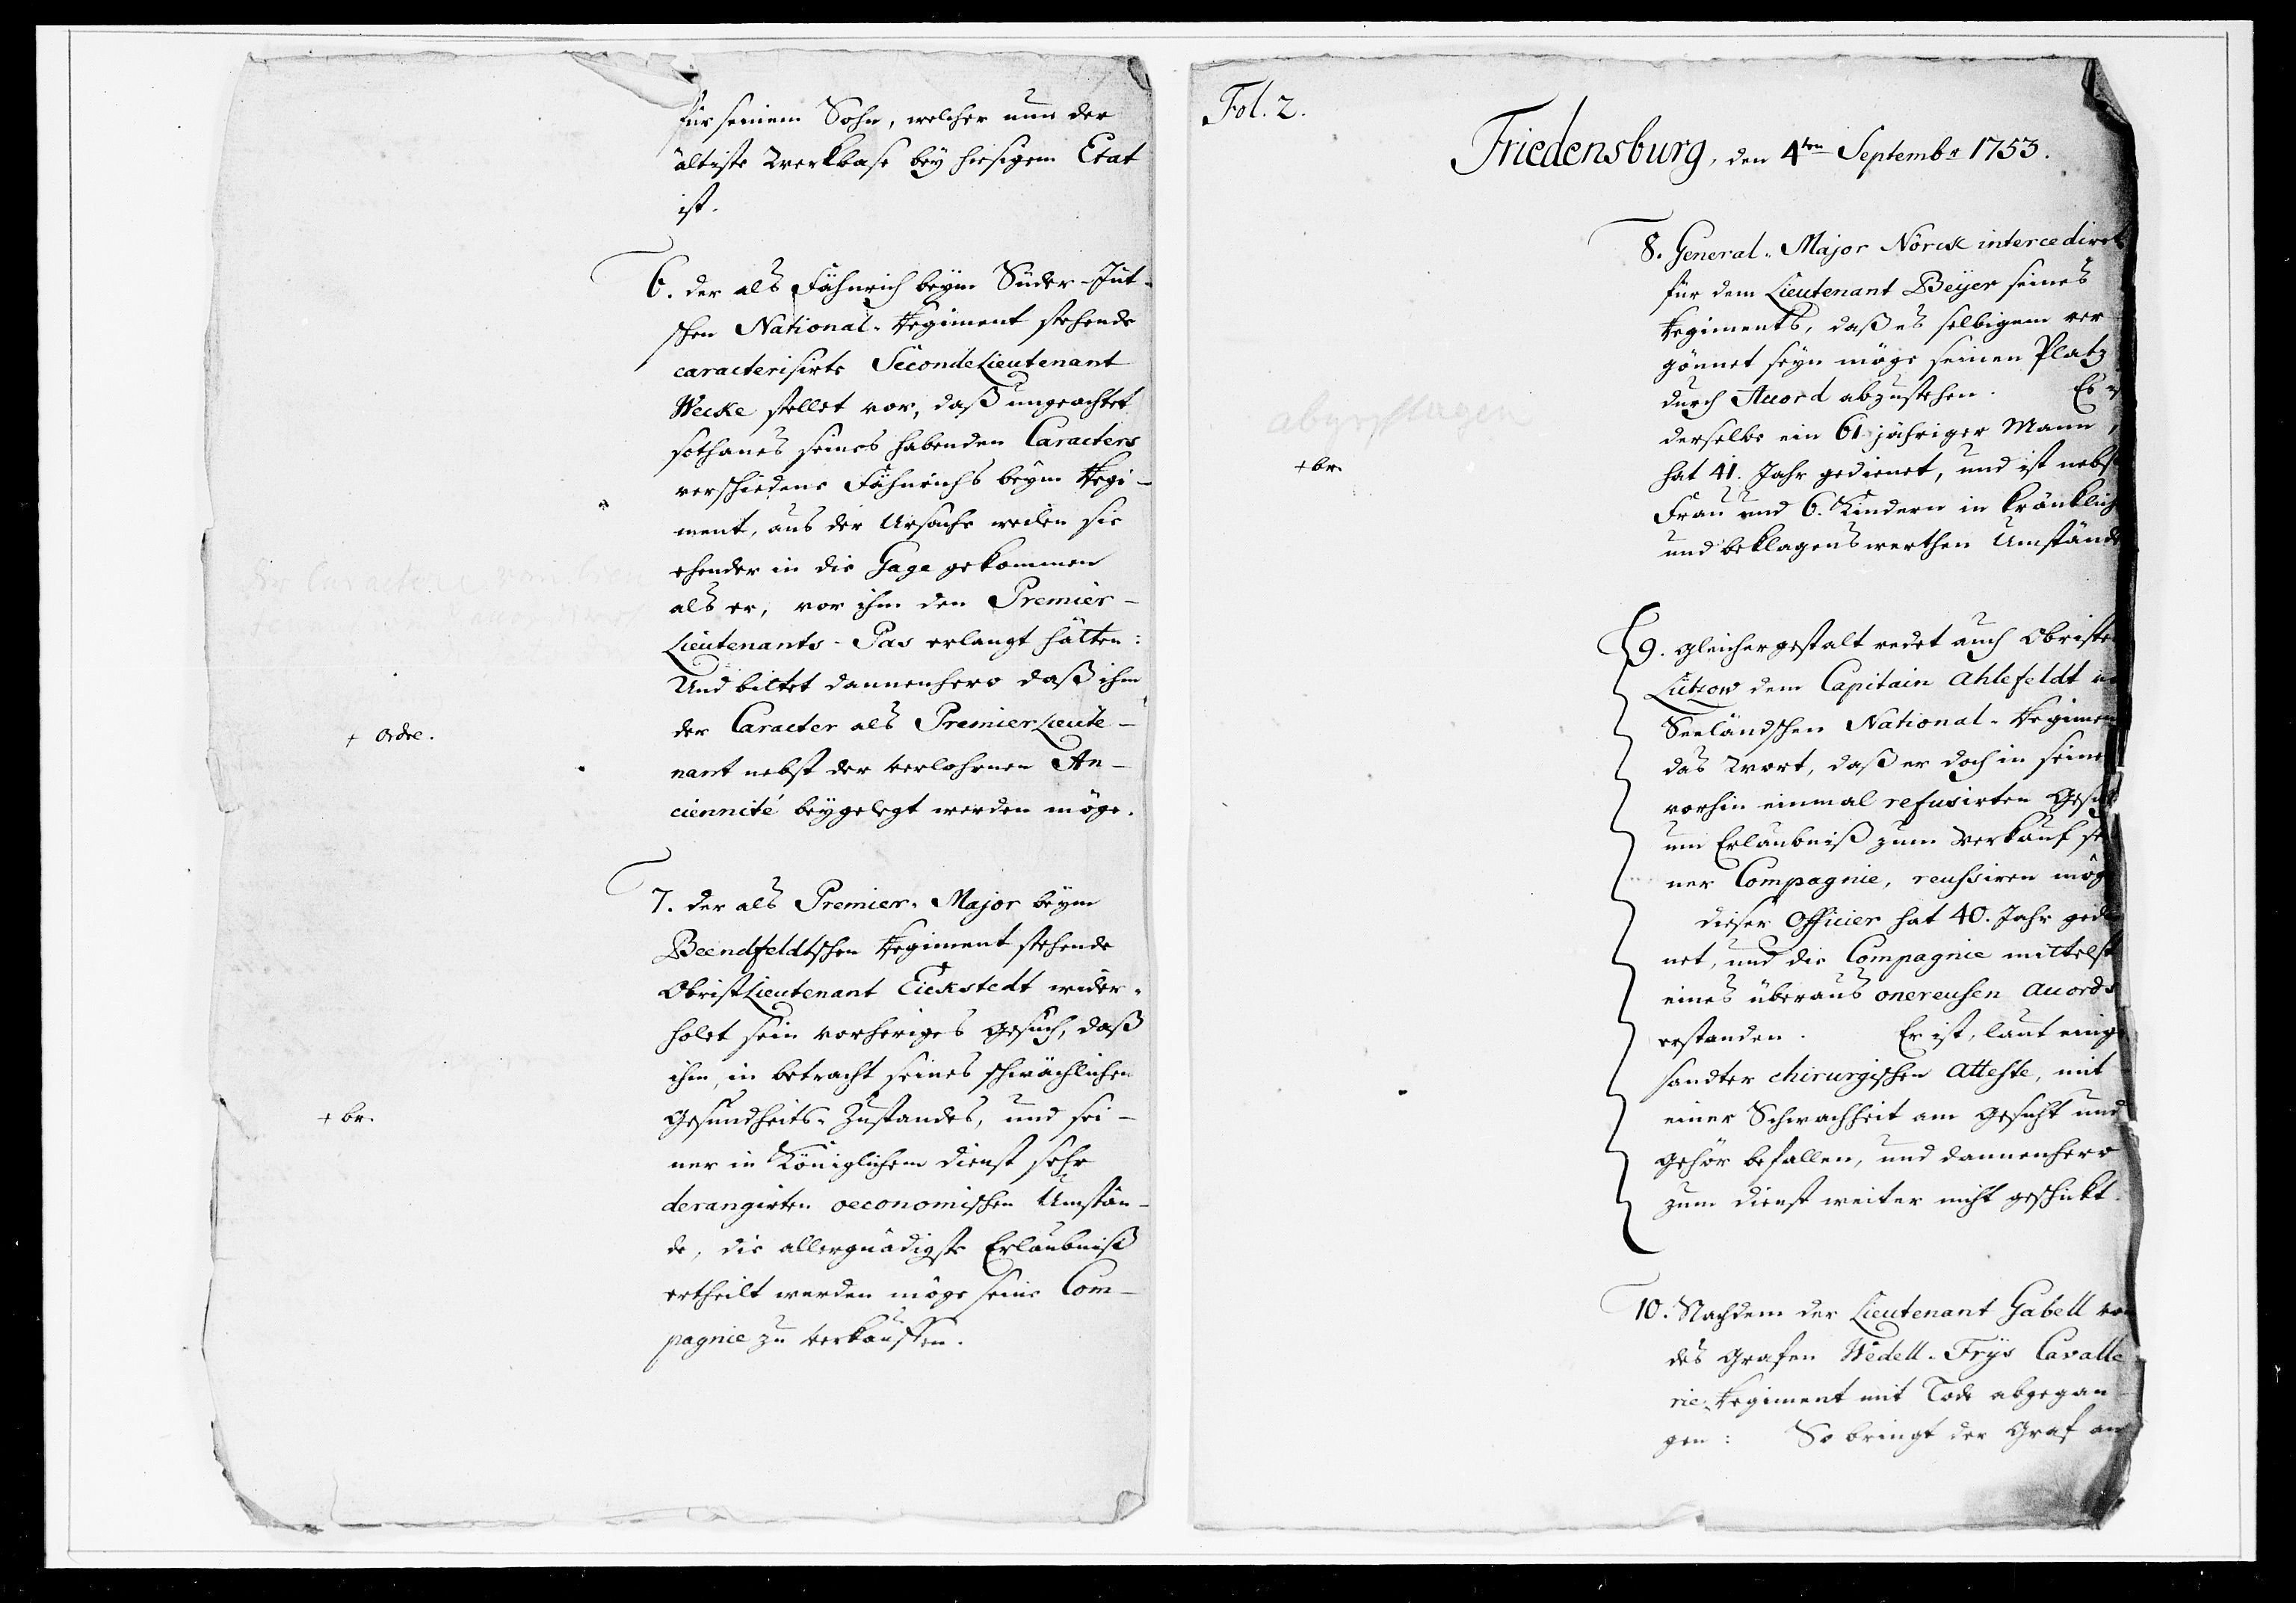 für seinem Sohn, welcher nun der
ältiste Werkbase bey hiesigem Etat
ist.
6. der als Fähnrich beym Süder-Jüt-
schen National-Regiment stehende
caracterisirte SecondeLieutenant
Wecke stellet vor, daß ungeachtet
sothanes seines habenden Caracters
verschiedene Fähnrichs beym Regi-
ment, aus der Ursache weilen sie
ehender in die Gage gekommen
als er, vor ihm den Premier-
Lieutenants-Pas erlangt hätten:
Und bittet dannenhero daß ihm
der Caracter als PremierLieute-
nant nebst der verlohrnen An-
ciennité beygelegt werden möge.
+ Ordre.
7. der als Premier-Major beym
Beendfeldtschen Regiment stehende
ObristLieutenant Eickstedt wider-
holet sein vorheriges Gesuch, daß
ihm, in betracht seines schwächlichen
Gesundheits-Zustandes, und sei-
ner in Königlichem dienst sehr
derangirten oeconomischen Umstän-
de, die allergnädigste Erlaubniß
ertheilt werden möge seine Com-
pagnie zu verkauffen.
+ br.
Fol. 2.
Friedensburg, den 4ten Septembr 1753.
8. General-Major Nörck intercediret
für dem Lieutenant Beyer seines
Regiments, daß es selbigem ver-
gönnet seyn möge seinen Platz
durch Accord abzustehen. Es
derselbe ein 61 jähriger Mann,
hat 41. Jahr gedienet, und ist nebst
Frau und 6. Kindern in kränklich
und beklagenswerthen Umstände
abgeschlagen
+ br.
9. Gleichergestalt redet auch Obrister
Lützow dem Capitain Ahlefeldt
Seeländschen National-Regimen
das Wort, daß er doch in seine
vorhin einmal refusirten Gesuch
um Erlaubniß zum Verkauf sei
ner Compagnie, reussiren möge
dieser Officier hat 40. Jahr gedie
net, und die Compagnie mittelst
eines überaus onereusen Accords
erstanden. Er ist, laut einge
sandter chirurgischen Atteste, mit
einer Schwachheit am Gesicht und
Gehör befallen, und dannenhero
zum dienst weiter nicht geschickt.
10. Nachdem der Lieutenant Gabell von
des Grafen Wedell-Frijs Cavalle
rie-Regiment mit Tode abgegan-
gen: So bringt der Graf an